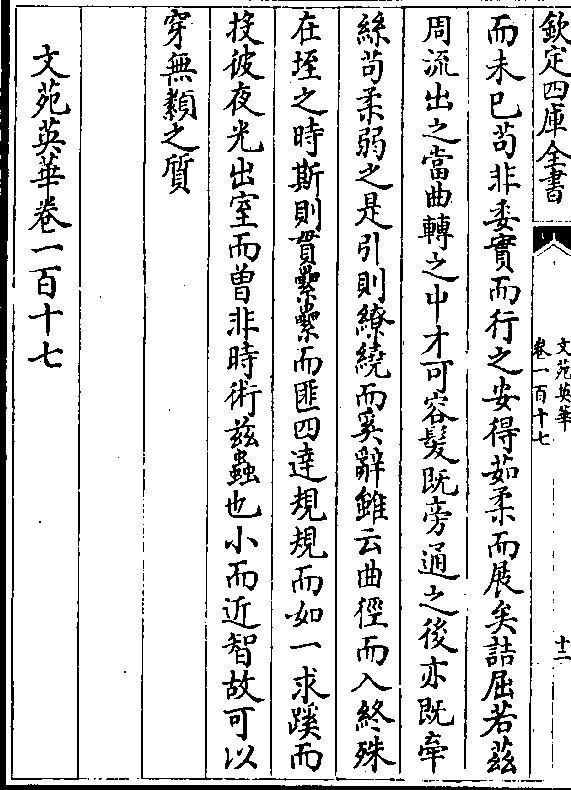 欽定四庫全書
文苑英華
卷一百十七
十二
而未巳苟非委實而行之安得茹柔而展矣詰屈若茲
周流出之當曲轉之中才可容髮既旁通之後亦既牽
絲苟柔弱之是引則繚繞而奚辭雖云曲徑而入終殊
在垤之時斯則貫纍纍而匪四達規規而如一求蹊而
投彼夜光出室而曽非時術茲蟲也小而近智故可以
穿無纇之質
文苑英華卷一百十七